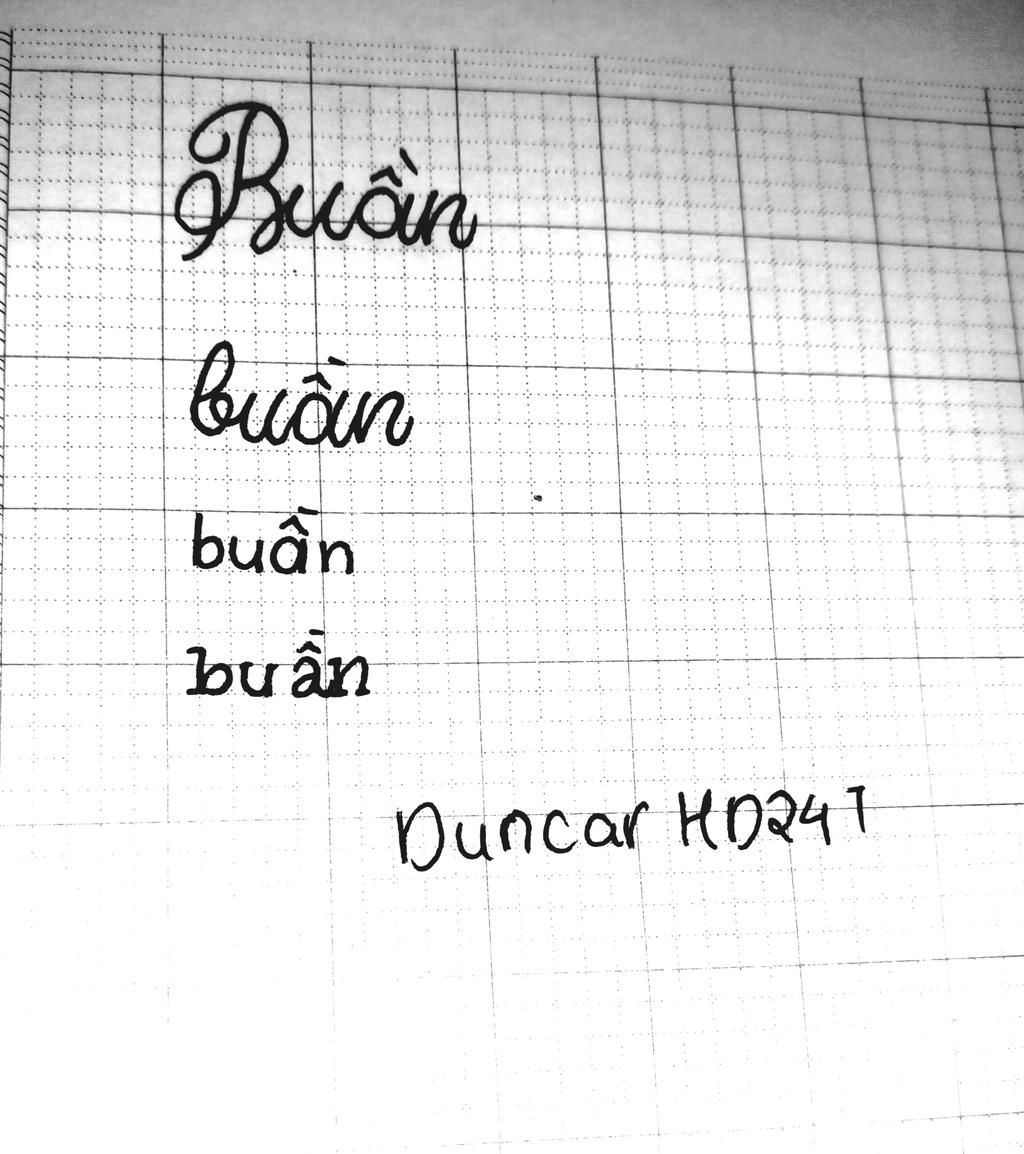 Buần
buần
buần
buần
Duncar HD24T